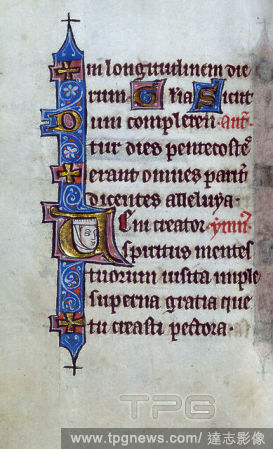 In longitudinem die
rum. Gl̅ia Sicut
Dum complerent̅ . an̅t̅.
tur dies pentecoste
erant omnes parit̅
dicentes alleluya .
Veni creator . ymn̅.
spiritus mentes
tuorum uisita imple
superna gratia que
tu creasti pectora .
TPG
www.tpgnews.com/ 達志影像